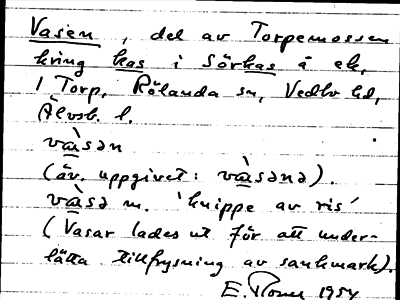 Vasen, del av Torpemossen
kring kas i Sörkas å ek.
1 Torp, Rölanda sn, Vedbo hd,
Älvsb. l.
và̱sən
(äv. uppgivet: và̱sənə).
và̱sə m. 'knippe av ris'
(Vasar lades ut för att under-
lätta tillfrysning av sankmark).
E. 1954